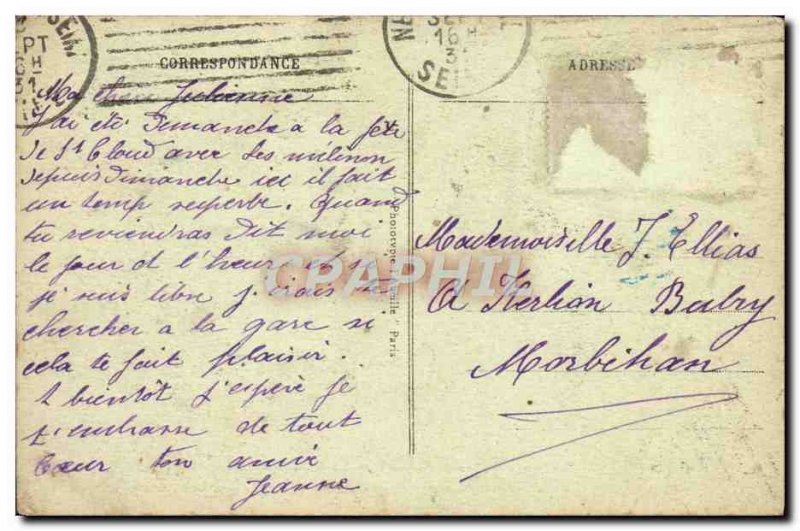 SEPT
16 H
SE
CORRESPONDANCE
ADRESSE
Ma chère Julienne
J'ai été Dimanche a la fête
de St Cloud avec les
depuis dimanche ici il fait
un temp superbe. Quand
tu reviendras dit moi
le jour et l'heure et si
je suis libre j'irais te
chercher a la gare si
cela te fait plaisir.
a bientôt j'espère je
t'embrasse de tout
Cœur ton amie
Jeanne
Phototypie Paris
CPAPHIL
Mademoiselle J. Ellias
A Kerlian Bubry
Morbihan